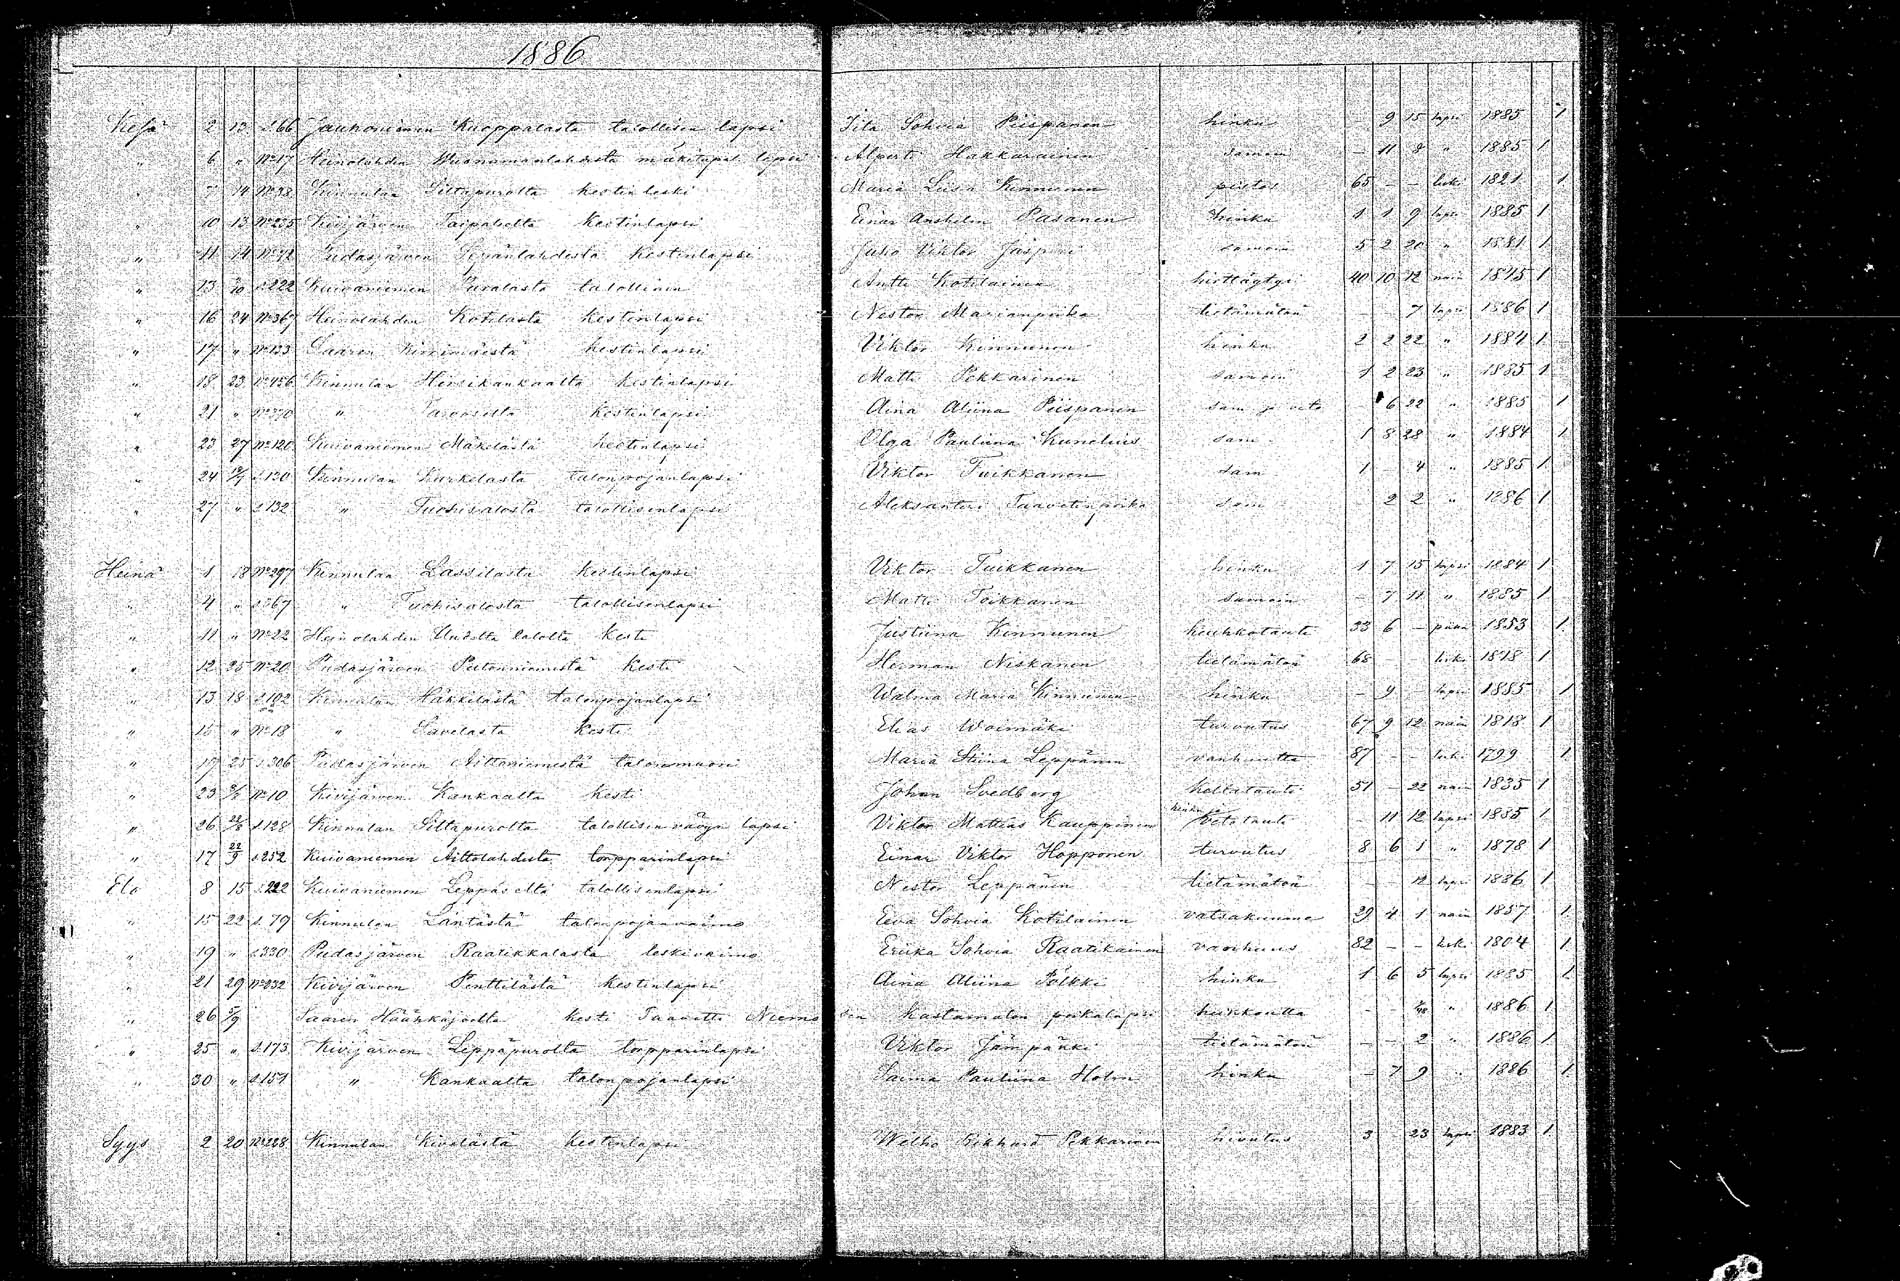 1886
Kesä 2 13 s.66 Jauhoniemen Kuoppalasta talollisen lapsi Iita Sohvia Piispanen hinku - 9 15 lapsi 1885 1
" 6 " No 17 Heinolahden mäkitupal. lapsi Alpertti Hakkarainen samoin - 11 8 " 1885 1
" 7 14 No 38 Kinnulan Siltapurolta kestin leski Maria Liisa Kinnunen pistos 65 - - leski 1821 1
" 10 13 No 235 Kivijärven Taipaleelta kestinlapsi Einar Anshelm Pasanen hinku 1 1 9 lapsi 1885 1
" 11 14 No 72 Pudasjärven kestinlapsi Juho Viktor samoin 5 2 20 " 1881 1
" 13 s.222 Kuivaniemen talollinen Antti Kotilainen hirttäytyi 40 10 12 nain 1845 1
" 16 24 No 367 Heinolahden Kotilasta kestinlapsi Nestor Marianpoika tietämätön - - 7 lapsi 1886 1
" 17 " No 133 Saaren kestinlapsi Viktor Kinnunen hinku 2 2 22 " 1884 1
" 18 23 No 456 Kinnulan Hirsikankaalta kestinlapsi Matti Pekkarinen samoin 1 2 23 " 1885 1
" 21 " " kestinlapsi Aina Aliina Piispanen sam ja veto 6 22 " 1885 1
" 23 27 No 120 Kuivaniemen Mäkelästä kestinlapsi Olga Pauliina Kunelius sam 1 8 28 " 1884 1
" 24 s.130 Kinnulan Kurkelasta talonpojanlapsi Viktor Tuikkanen sam 1 - 4 " 1885 1
" 27 " s.132 " Tuohisalosta talollisenlapsi Aleksanteri Taavetinpoika sam 2 2 " 1886 1
Heinä 1 18 No 297 Kinnulan Lassilasta kestinlapsi Viktor Tuikkanen hinku 1 7 15 lapsi 1884 1
" 4 " s.67 " Tuohisalosta talollisenlapsi Matti Toikkanen samoin - 7 11 " 1885 1
" 11 " No 22 Heinolahden Uudelta talolta kesti Justiina Kinnunen keuhkotauti 33 6 - piika 1853 1
" 12 25 No 20 Pudasjärven Petonniemestä kesti Herman Niskanen tietämätön 68 - leski 1818 1
" 13 18 s.102 Kinnulan Häkkilästä talonpojanlapsi Walma Maria Kinnunen hinku - 9 - lapsi 1885 1
" 15 " No 18 " Savelasta kesti Elias Woimäki turvotus 67 9 12 nain 1818 1
" 17 25 s.306 Pudasjärven Aittoniemestä talonmuori Maria Stiina Leppänen vanhuutta 87 - - leski 1799 1
" 23 No 10 Kivijärven Kankaalta kesti Johan Svedberg keltatauti 51 - 22 nain 1835 1
" 26 22/8 s.128 Kinnulan Siltapurolta talollisen vävyn lapsi Viktor Mattias Kauppinen hinku ja vetotauti - 11 12 lapsi 1885 1
" 17 22/9 s.252 Kuivaniemen Aittolahdesta torpparinlapsi Einar Viktor Hopponen turvotus 8 6 1 " 1878 1
Elo 8 15 s.222 Kuivaniemen talollisenlapsi Nestor Leppänen tietämätön - - 12 lapsi 1886 1
" 15 22 s.79 KinnulanLäntästä talonpojanvaimo Eeva Sohvia Kotilainen 29 4 1 nain 1857 1
" 19 " s.330 Pudasjärven Raatikkalasta leskivaimo Eriika Sohvia Raatikainen vanhuus 82 - - leski 1804 1
" 21 29 No 232 Kivijärven Penttilästä kestinlapsi Aina Aliina Pölkki hinku 1 6 5 lapsi 1885 1
" 26 5/9 Saaren kesti Taavetti Niemosen kastamaton poikalapsi heikkoutta - - " 1886 1
" 25 " s.173 Kivijärven Leppäpurolta torpparinlapsi Viktor Jämpänki tietämätön - - 2 " 1886 1
" 30 " s.151 " Kankaalta talonpojanlapsi Saima Pauliina Holm hinku - 7 9 " 1886 1
Syys 2 20 No 288 Kinnulan Kivelästä kestinlapsi Welho Rikhard Pekkarinen hivutus 3 23 lapsi 1883 1